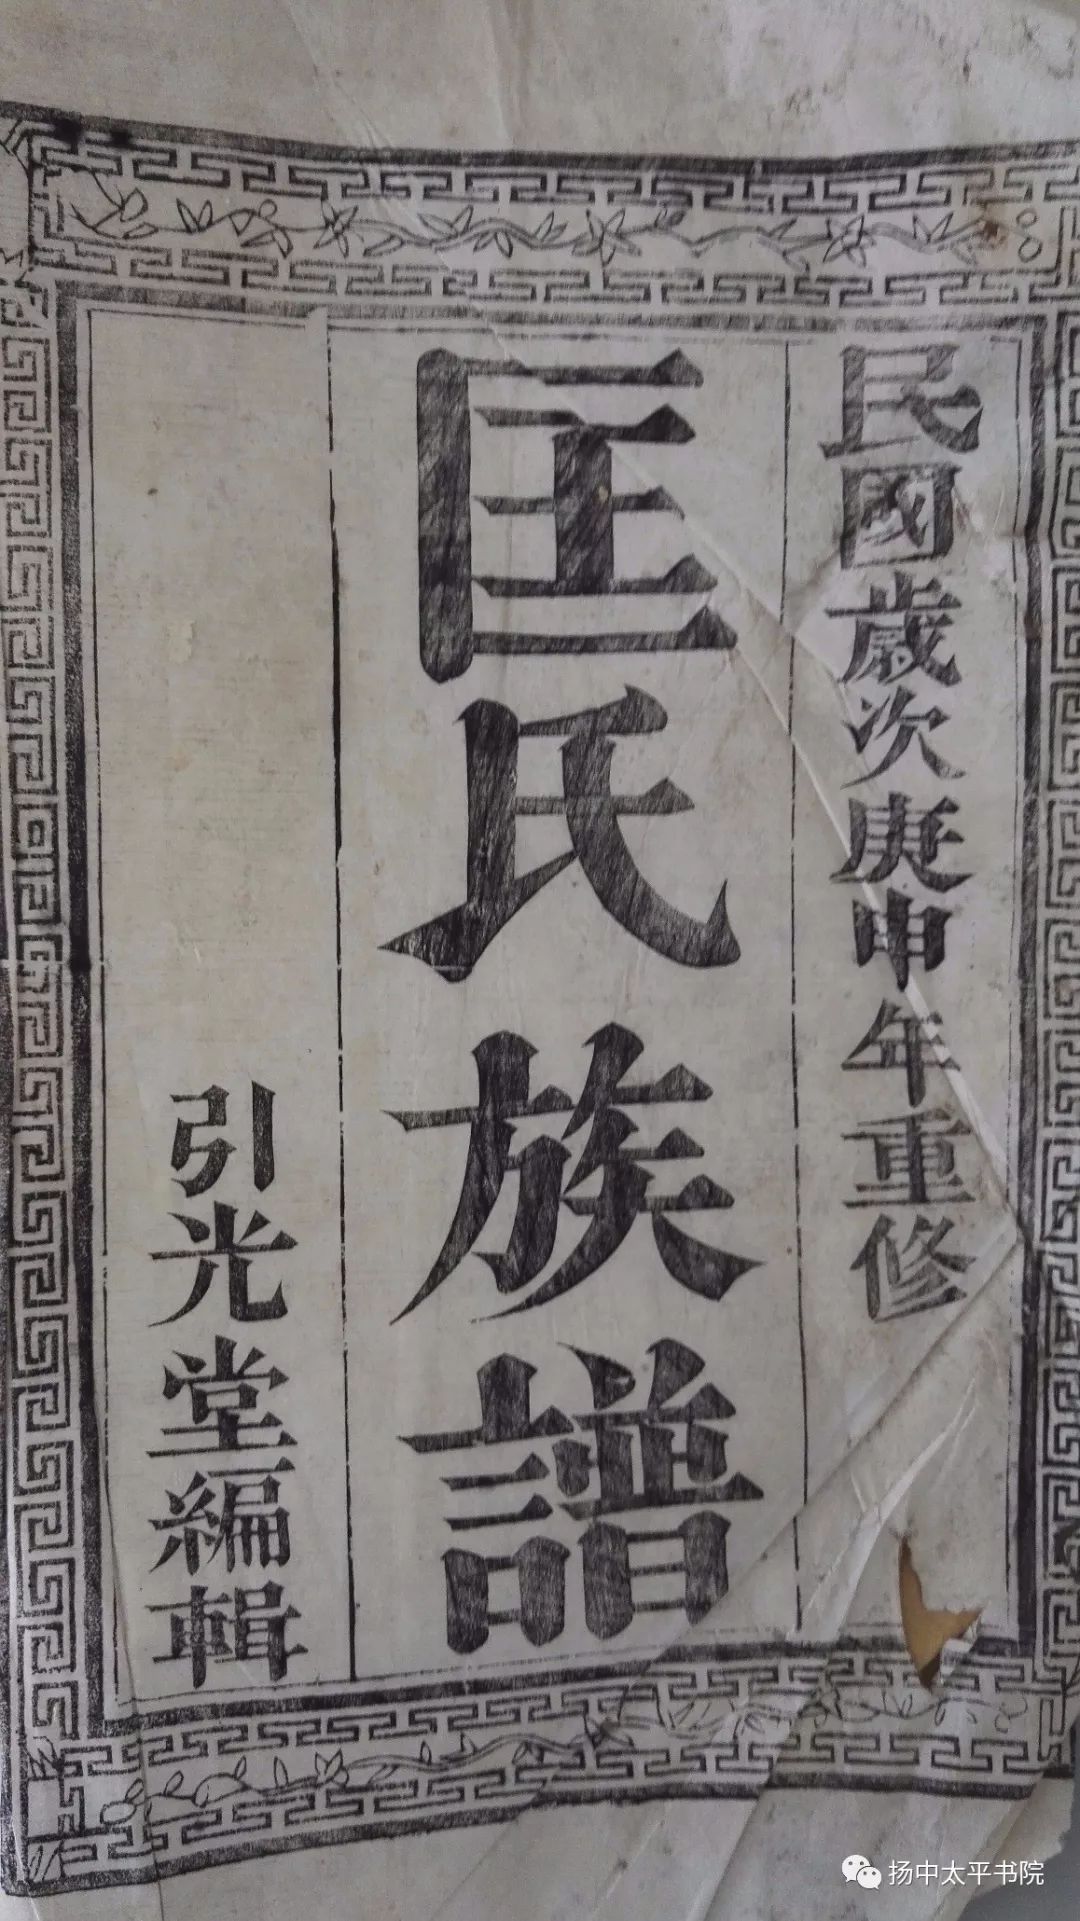 民國歲次庚申年重修
匡氏族譜
引光堂編輯
扬中太平书院